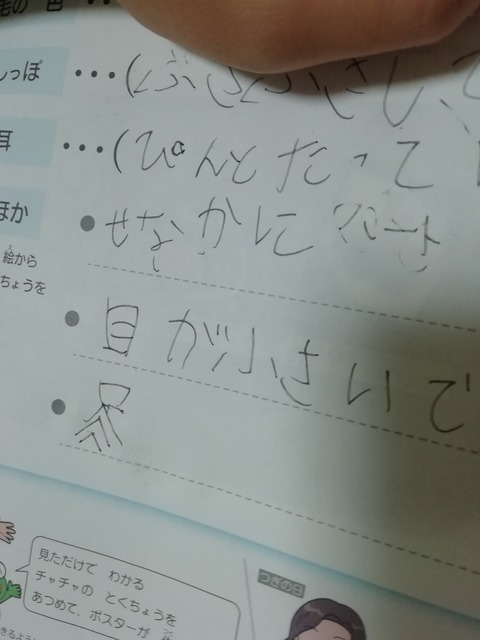 毛の 色 ・・
しっぽ ・・・(ふさふさし
耳 ・・・(ぴんとたって
ほか
● せなかにハート
絵から
ちょうを
● 目が小さいで
●
見ただけで わかる
チャチャの とくちょうを
あつめて、ポスターが
つぎの日
きるように